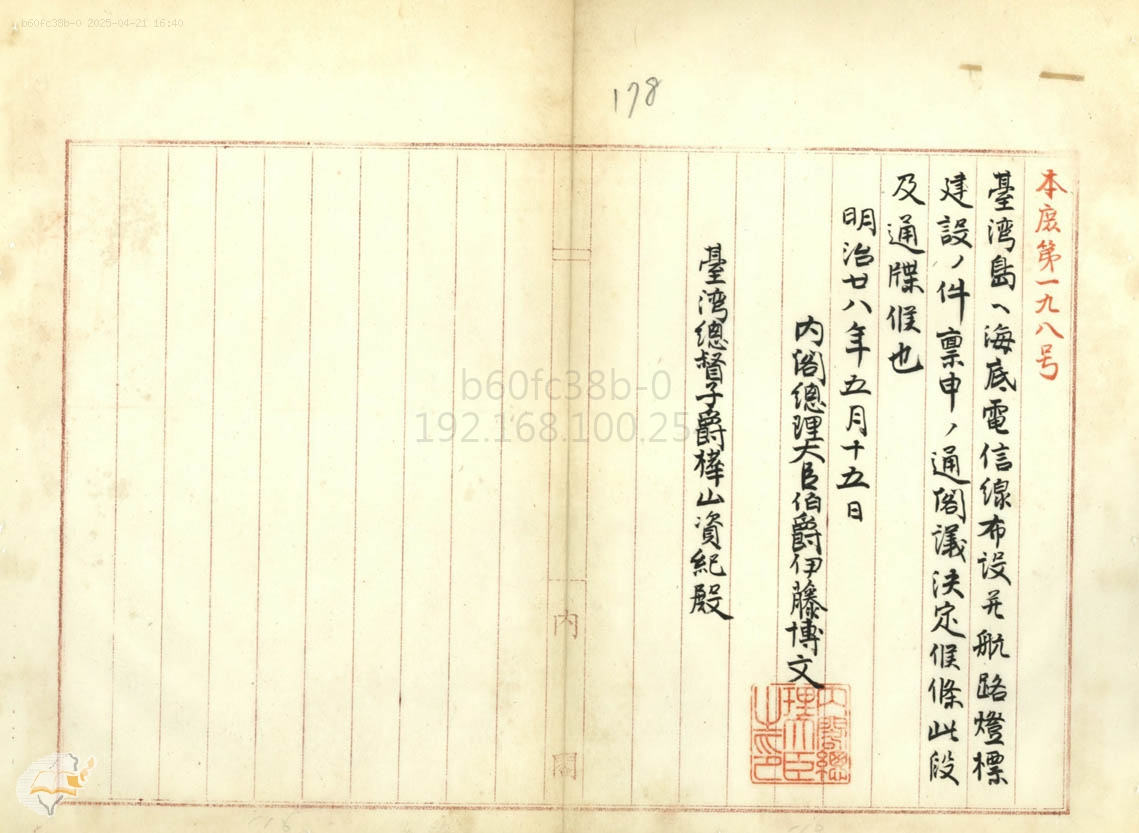 b60fc38b-0 2025-04-21 16:40
178
本度第一九八号
臺湾島ヘ海底電信線布設並航路燈標
建設ノ件禀申ノ通閣議決定候條此段
及通牒候也
明治廿八年五月十五日
内閣總理大臣伯爵伊藤博文
内閣總
理大臣
之印
臺湾總督子爵樺山資紀殿
内閣
b60fc38b-0
192.168.100.25